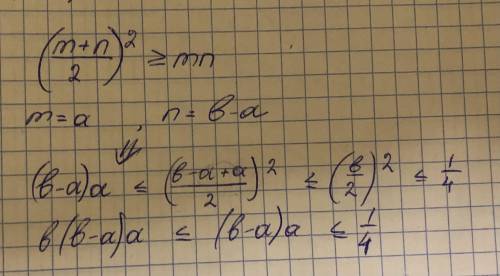 ((m+n)/2)² ≥ mn
m = a , n = b-a
⇓
(b-a)a ≤ ((b-a+a)/2)² ≤ (b/2)² ≤ 1/4
b(b-a)a ≤ (b-a)a ≤ 1/4